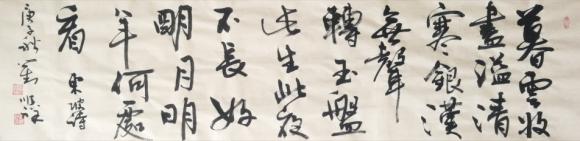 暮雲收
盡溢清
寒銀漢
無聲
轉玉盤
此生此夜
不長好
明月明
年何處
看 東坡詩
庚子秋